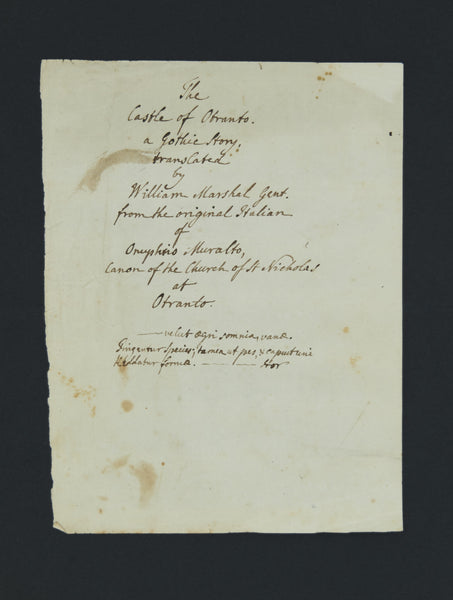 The
Castle of Otranto.
a Gothic Story,
translated
by
William Marshal Gent.
from the original Italian
of
Onuphrio Muralto,
Canon of the Church of St Nicholas
at
Otranto.
——velut ægri somnia, vanæ
Fingentur species; tamen ut pes, & caput uni
Reddatur formæ. —— —— Hor